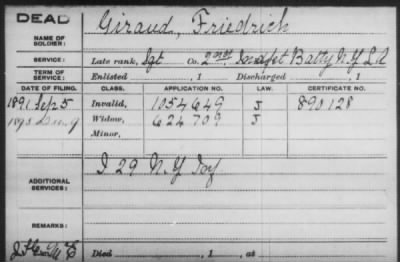 DEAD
NAME OF SOLDIER:
Giraud, Friedrich
SERVICE:
Late rank, Sgt Co. 2nd Batty N.Y. L.A
TERM OF SERVICE:
Enlisted , 1 Discharged , 1
DATE OF FILING. CLASS. APPLICATION NO. LAW. CERTIFICATE NO.
1891 Sep 5 Invalid, 1054649 J 890128
1895 Widow, 624709 J
Minor,
ADDITIONAL SERVICES:
I 29 N.Y Inf
REMARKS:
Died , 1 , at